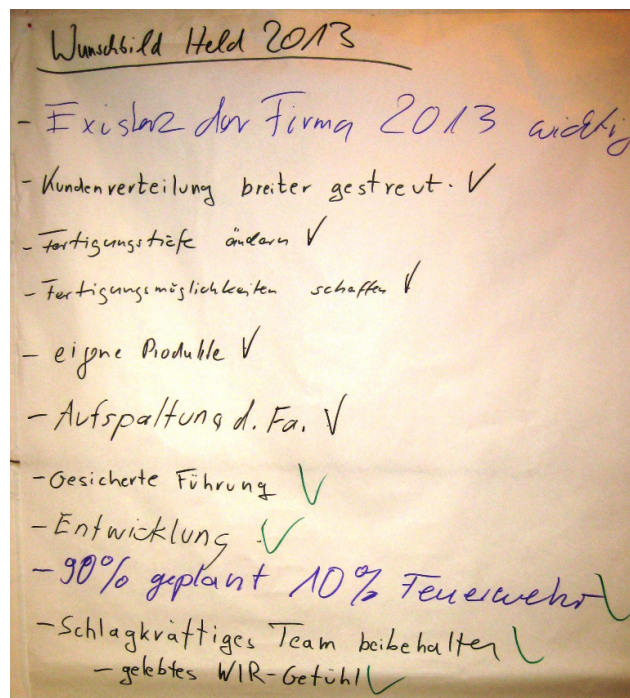 Wunschbild Held 2013
- Existenz der Firma 2013 wichtig
- Kundenverteilung breiter gestreut. ✓
- Fertigungstiefe ändern ✓
- Fertigungsmöglichkeiten schaffen ✓
- eigene Produkte ✓
- Aufspaltung d. Fa. ✓
- Gesicherte Führung ✓
- Entwicklung ✓
- 90% geplant 10% Feuerwehr ✓
- Schlagkräftiges Team beibehalten ✓
- gelebtes WIR-Gefühl ✓